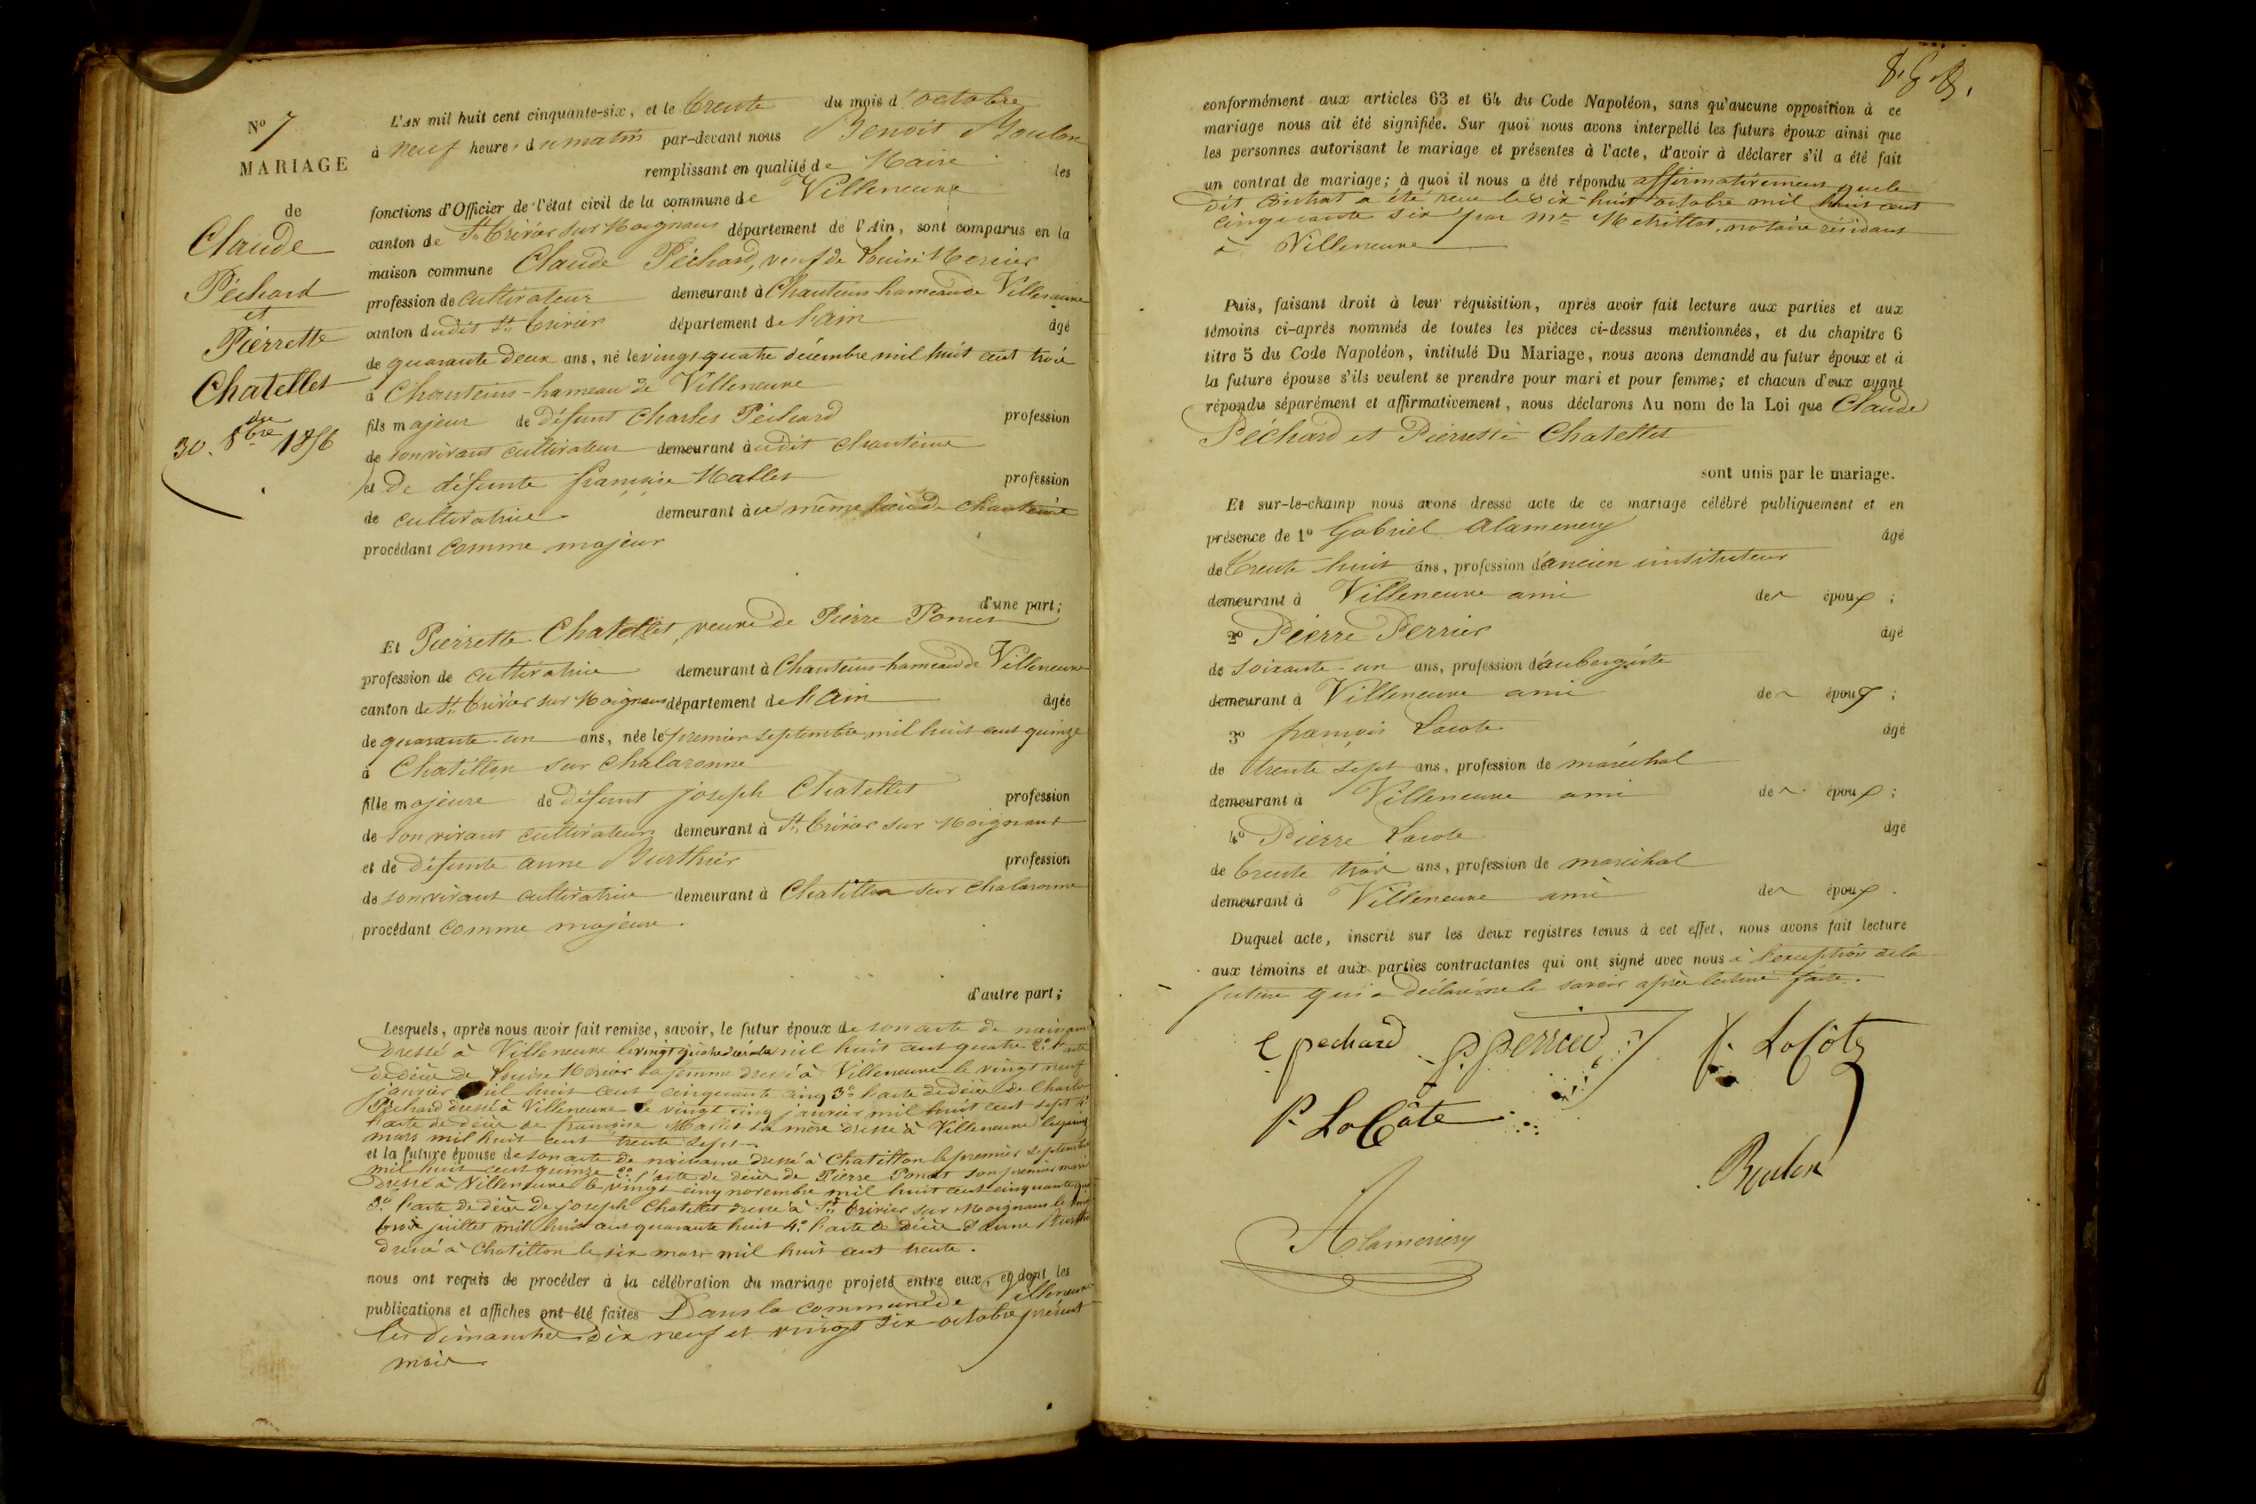 N° 7
MARIAGE
de
Claude
Péchard
et
Pierrette
Chatellet
du
30. 8bre 1856
L'AN mil huit cent cinquante-six, et le trente du mois d'octobre
à neuf heures du matin par-devant nous Benoit Boulon
remplissant en qualité de Maire les
fonctions d'Officier de l'état civil de la commune de Villeneuve
canton de St. Trivier sur Moignans département de l'Ain, sont comparus en la
maison commune Claude Péchard, veuf de Louise Mercier
profession de cultivateur demeurant à Chanteins hameau de Villeneuve
canton dudit St. Trivier département de l'ain âgé
de quarante deux ans, né le vingt quatre décembre mil huit cent trois
à Chanteins-hameau de Villeneuve
fils majeur de défunt Charles Péchard profession
de son vivant cultivateur demeurant audit Chanteins
et de défunte françoise Mallet profession
de cultivatrice demeurant à ce même lieu de Chanteins
procédant comme majeur
d'une part;
Et Pierrette Chatellet, veuve de Pierre Poncet
profession de cultivatrice demeurant à Chanteins-hameau de Villeneuve
canton de St. Trivier sur Moignans département de l'ain âgée
de quarante-un ans, née le premier septembre mil huit cent quinze
à Chatillon sur Chalaronne
fille majeure de défunt joseph Chatellet profession
de son vivant cultivateur demeurant à St. Trivier sur Moignans
et de défunte anne Burthier profession
de son vivant cultivatrice demeurant à Chatillon sur Chalaronne
procédant comme majeure.
d'autre part;
Lesquels, après nous avoir fait remise, savoir, le futur époux de son acte de naissance
dressé à Villeneuve le vingt quatre mil huit cent quatre 2° l'acte
de décès de Louise Mercier sa femme dressé à Villeneuve le vingt neuf
janvier mil huit cent cinquante cinq 3° l'acte de décès de Charles
Péchard dressé à Villeneuve le vingt cinq janvier mil huit cent sept 4°
l'acte de décès de françoise Mallet sa mère dressé à Villeneuve le quinze
mars mil huit cent trente sept
et la future épouse de son acte de naissance dressé à Chatillon le premier septembre
mil huit cent quinze 2° l'acte de décès de Pierre Poncet son premier mari
dressé à Villeneuve le vingt cinq novembre mil huit cent cinquante
3° l'acte de décès de joseph Chatellet dressé à St. Trivier sur Moignans le
trois juillet mil huit cent quarante huit 4° l'acte de décès d'anne Burthier
dressé à Chatillon le six mars mil huit cent trente.
nous ont requis de procéder à la célébration du mariage projeté entre eux, et dont les
publications et affiches ont été faites Dans la commune de Villeneuve
les dimanches dix neuf et vingt six octobre présent
mois
conformément aux articles 63 et 64 du Code Napoléon, sans qu'aucune opposition à ce
mariage nous ait été signifiée. Sur quoi nous avons interpellé les futurs époux ainsi que
les personnes autorisant le mariage et présentes à l'acte, d'avoir à déclarer s'il a été fait
un contrat de mariage; à quoi il nous a été répondu affirmativement que le
dit contrat a été reçu le dix-huit octobre mil huit cent
cinquante six par Me notaire résidant
à Villeneuve
Puis, faisant droit à leur réquisition, après avoir fait lecture aux parties et aux
témoins ci-après nommés de toutes les pièces ci-dessus mentionnées, et du chapitre 6
titre 5 du Code Napoléon, intitulé Du Mariage, nous avons demandé au futur époux et à
la future épouse s'ils veulent se prendre pour mari et pour femme; et chacun d'eux ayant
répondu séparément et affirmativement, nous déclarons Au nom de la Loi que Claude
Péchard et Pierrette Chatellet
sont unis par le mariage.
Et sur-le-champ nous avons dressé acte de ce mariage célébré publiquement et en
présence de 1° Gabriel Alamenery âgé
de trente huit ans, profession d'ancien instituteur
demeurant à Villeneuve ami des époux;
2° Pierre Perrier âgé
de soixante-un ans, profession d'aubergiste
demeurant à Villeneuve ami des époux;
3° françois Lacote âgé
de trente sept ans, profession de maréchal
demeurant à Villeneuve ami des époux;
4° Pierre Lacote âgé
de trente trois ans, profession de maréchal
demeurant à Villeneuve ami des époux.
Duquel acte, inscrit sur les deux registres tenus à cet effet, nous avons fait lecture
aux témoins et aux parties contractantes qui ont signé avec nous à l'exception de la
future qui a déclaré ne le savoir après lecture faite.
C pechard p perrier f. LaCôte
P. LaCôte
Boulon
Alamenery